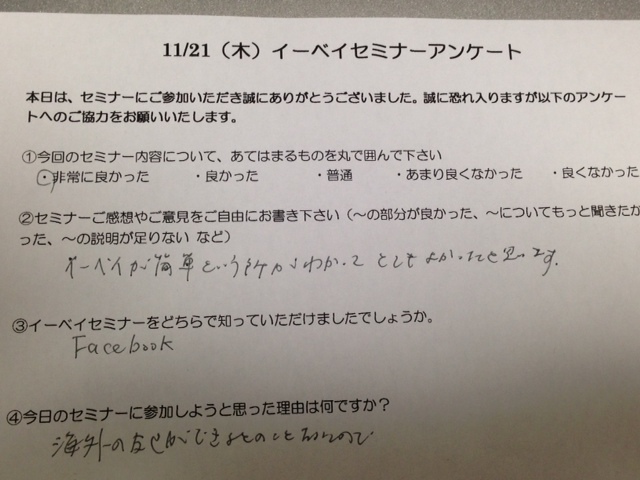 11/21（木）イーベイセミナーアンケート
本日は、セミナーにご参加いただき誠にありがとうございました。誠に恐れ入りますが以下のアンケー
トへのご協力をお願いいたします。
①今回のセミナー内容について、あてはまるものを丸で囲んで下さい
・非常に良かった ・良かった ・普通 ・あまり良くなかった ・良くなかった
②セミナーご感想やご意見をご自由にお書き下さい（～の部分が良かった、～についてもっと聞きたか
った、～の説明が足りない など）
イーベイが簡単という わかって とてもよかったと思います。
③イーベイセミナーをどちらで知っていただけましたでしょうか。
Facebook
④今日のセミナーに参加しようと思った理由は何ですか？
海外の ができるとのこと